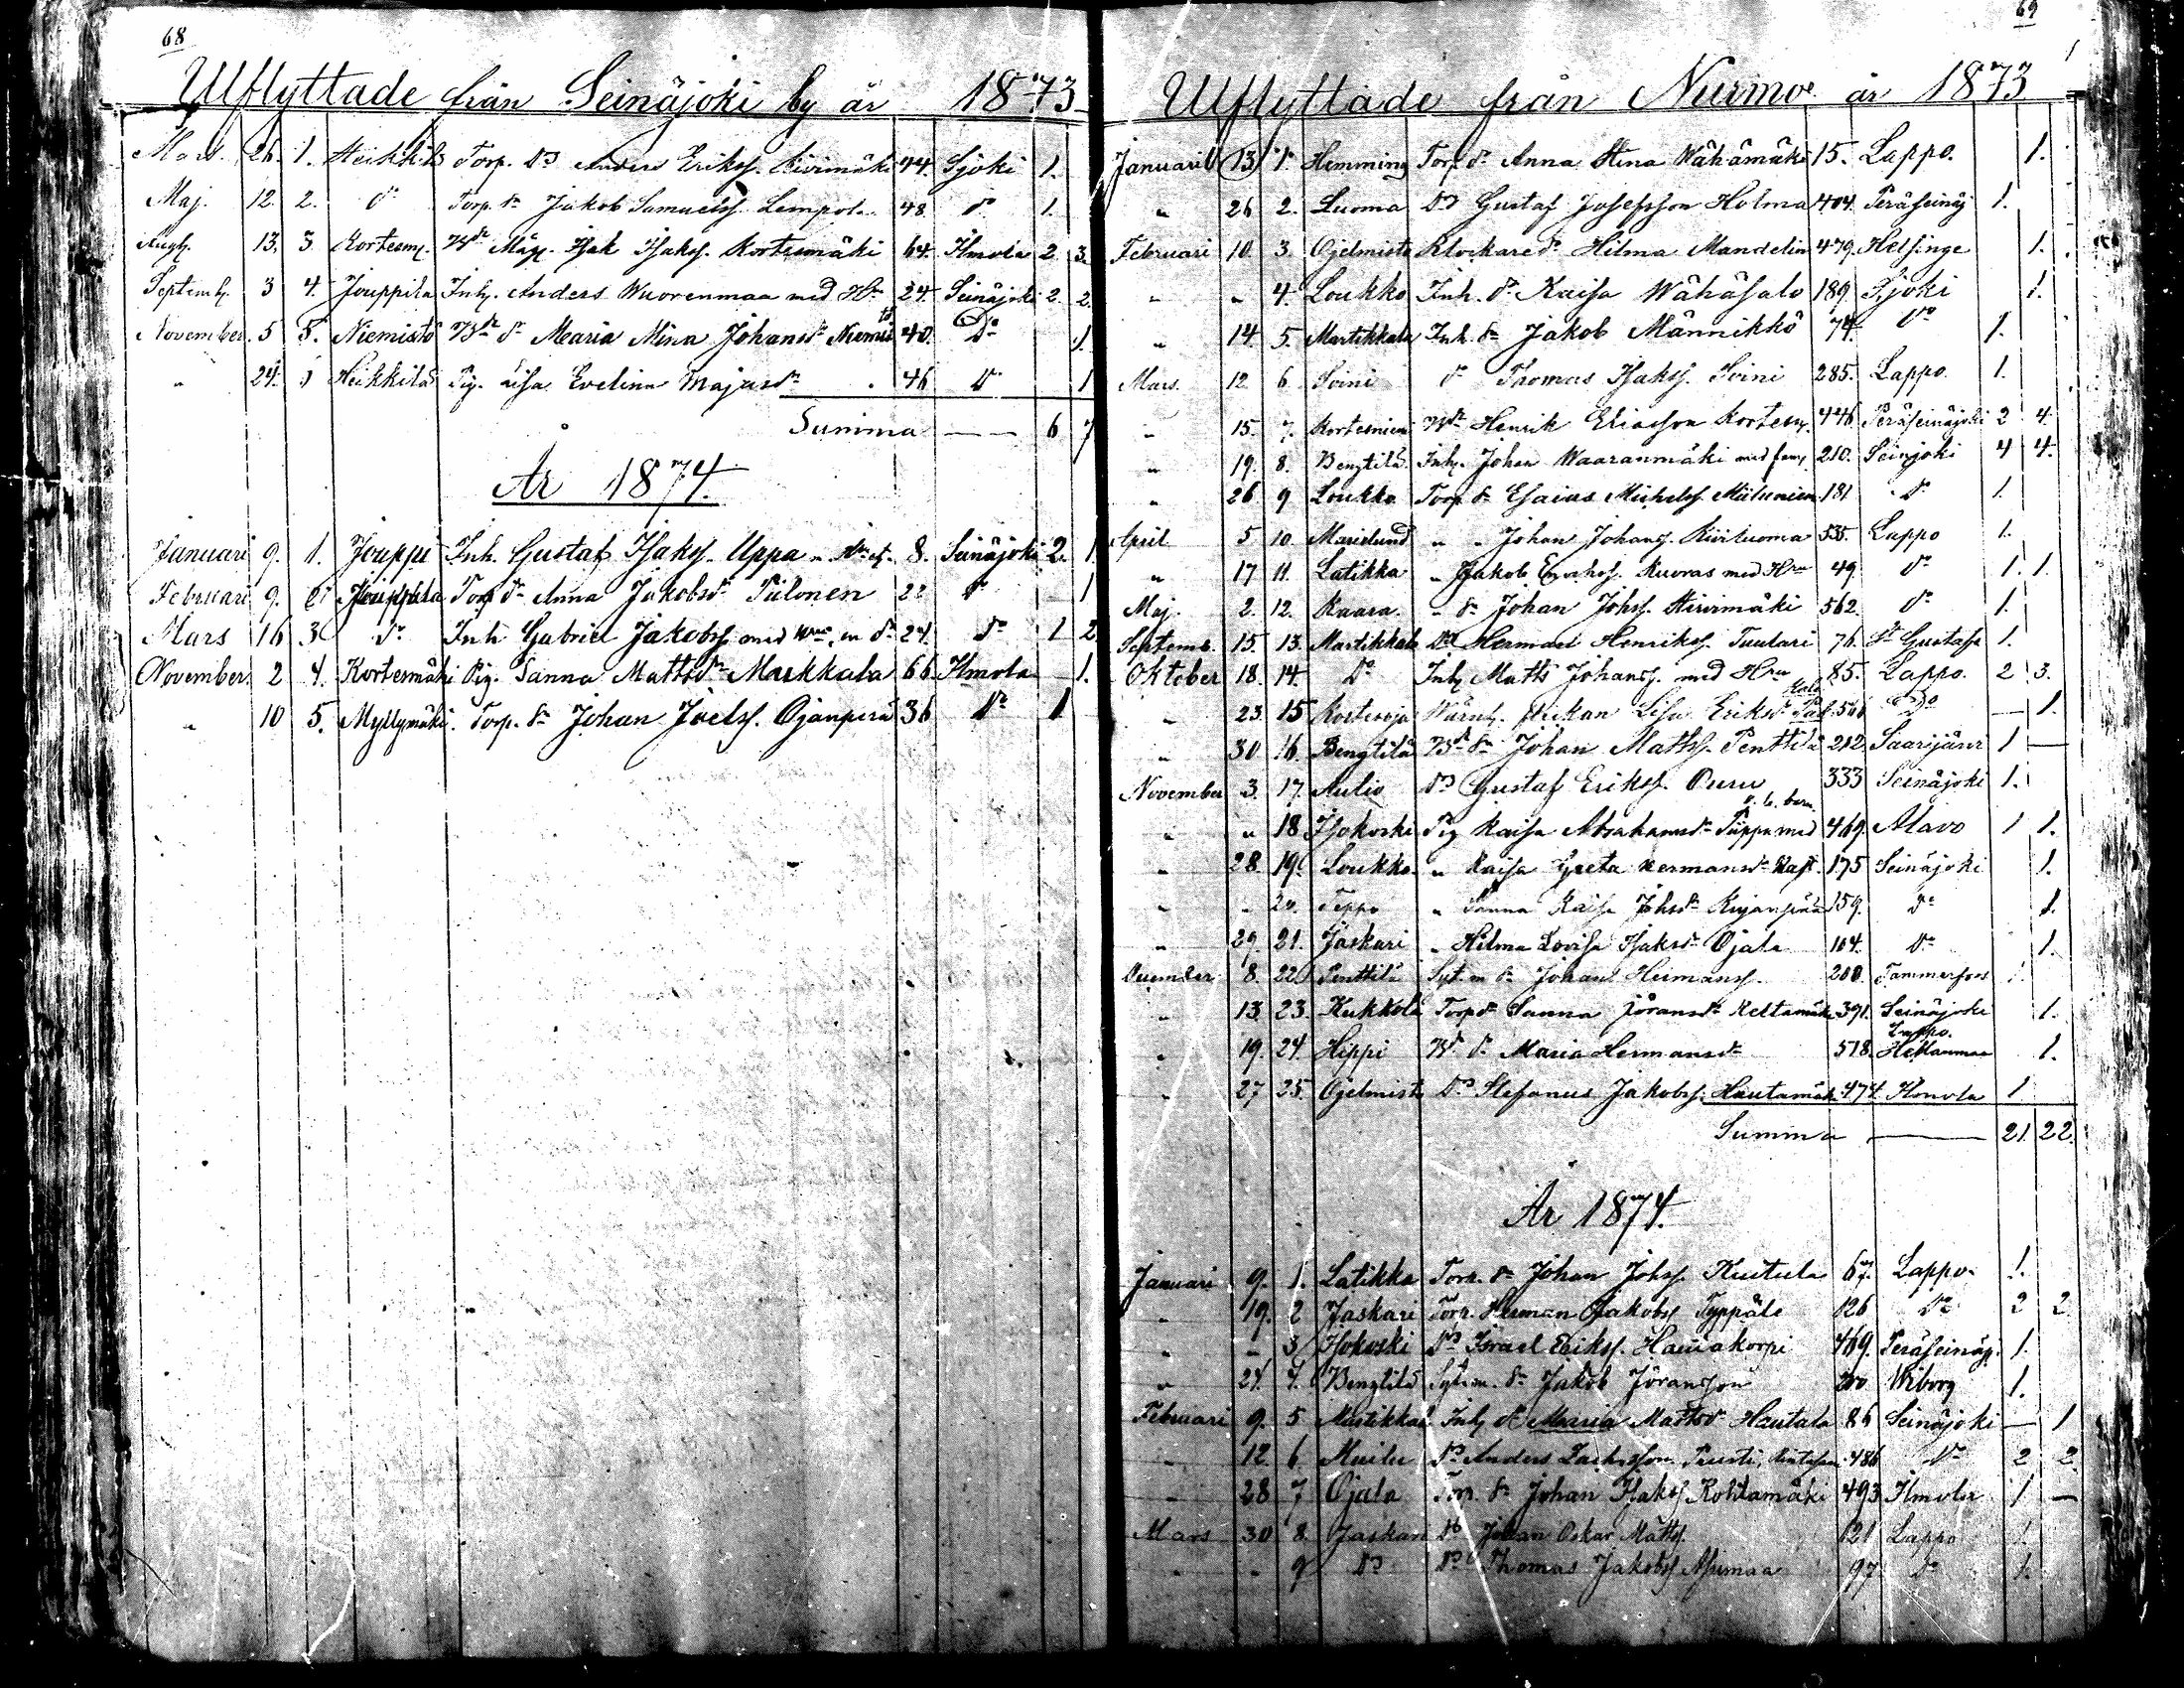 68
Utflyttade från Seinäjoki by år 1873
Mars. 26. 1. Heikkilä Torp. Ds Anders Eriks. Kivimäki 44. Sjoki 1.
Maj. 12. 2. do Torp. dr Jakob Samuelss. Lempol. 48 do 1.
Aug. 13. 3. Kortesm. Isak Isaks. Kortesmäki 64. Ilmola 2. 3.
Septemb. 3 4. Jouppila Inh. Anders Wuorenmaa med Hu 24. Seinäjoki 2. 2.
November 5 5. Niemistö Bdr dr Maria Mina Johansdr Niemistö 40. Do 1.
" 24. Heikkilä Pig. Lisa Evelina Majasdr 46 Do 1
Summa — 6 7
År 1874.
Januari 9. 1. Jouppi Inh. Gustaf Isaks. Uppa 8. Seinäjoki 2. 1.
Februari 9. 2. Jouppila Torp dr Anna Jakobsdr Piilonen 22 do 1
Mars 16 3. do Inh. Gabriel Jakobs. med 24. do 1 2.
November 2 4. Kortesmäki Pig. Sanna Mattsdr Markkala 66. Ilmola — 1.
" 10 5. Myllymäki. Torp. dr Johan Joels. Ojanperä 36 do 1
69
Utflyttade från Nurmo år 1873
Januari 13 1. Hemming Torp. dr Anna Stina Wähämäki 15. Lappo. 1.
" 26 2. Luoma Ds Gustaf Josefsson Holma 404. Peräseinäj 1.
Februari 10. 3. Ojelmisto Klockaredr Hilma Mandelin 479. Helsinge 1.
" " 4. Loukko Inh. dr Kaisa Wähäsalo 189. Sjoki 1.
" 14. 5. Martikkala Inh. dr Jakob Männikkö 74. do 1.
Mars. 12 6. Soini dr Thomas Isaks. Soini 285. Lappo. 1.
" 15. 7. Kortesniem Bdr Henrik Eliasson Kortesn. 446. Peräseinäjoki 2 4.
" 19. 8. Bengtilä Inh. Johan Waaranmäki med fam. 210. Seinjoki 4 4.
" 26 9 Loukko Torp. dr Esaias Michels. Miilunien 181 do 1.
April 5 10. Marielund " " Johan Johans. Kiviluoma 535. Lappo 1.
" 17 11. Latikka " Jakob Kuoras med Hu 49. do 1. 1.
Maj. 2. 12. Kaara. " dr Johan Johs. Hirvimäki 562. do 1.
Septemb. 15. 13. Martikkala Ds Herman Henriks. Tuulari 76. St Gustafs 1.
Oktober 18. 14. do Inh. Matts Johans. med Hu 85. Lappo. 2 3.
" 23. 15 Kortesoja Lisa Eriksdr 566 Do — 1.
" 30 16. Bengtilä Bdr dr Johan Matts. Penttilä 212. Saarijärvi 1 —
November 3. 17. Aulio Ds Gustaf Eriks. Puru 333 Seinäjoki 1.
" " 18 Isokoski Pig Kaisa Abrahamsdr Piippa med o. ä. barn 469. Alavo 1 1.
" 28 19. Loukko. " Kaisa Greta Hermansdr 175 Seinäjoki 1.
" " 20. Teppo " Sanna Kaisa Johsdr Kujanpää 159. do 1.
" 29. 21. Jaskari " Hilma Lovisa Isaksdr Ojala 104. do 1.
December 8. 22. Penttilä Syt. m dr Johan Hermans. 200. Tammerfors 1.
" 13. 23. Kukkola Torpdr Sanna Jöransdr Keltamäki 391. Seinäjoki 1.
" 19. 24. Hippi Bdr dr Maria Hermansdr 518. Lappo. 1.
" 27 25. Ojelmisto Ds Stefanus Jakobs. Hautamäki 474. Ilmola 1
Summa — 21. 22.
År 1874.
Januari 9. 1. Latikka Torp. dr Johan Johs. Kuitula 67. Lappo 1.
" 19. 2 Jaskari Torp. Herman Jakobs. Typpälä 126 do 2 2.
" " 3 Isokoski Ds Israel Eriks. Hauiakorpi 469. Peräseinäj. 1.
" 24. 4. Bengtilä Syt. m. dr Jakob Jöransson 200 Wiborg 1.
Februari 9. 5 Martikkal Inh. dr Maria Mattsdr Hautala 86 Seinäjoki — 1
" 12. 6. Muilu Ds Anders 486 do 2 2.
" 28 7 Ojala Torp. dr Johan Isaks. Kohtamäki 493 Ilmola 1 —
Mars 30 8. Jaskari Ds Johan Oskar Matts. 121 Lappo 1.
" " 9 Do Ds Thomas Jakobs. Asumaa 97 do 1.